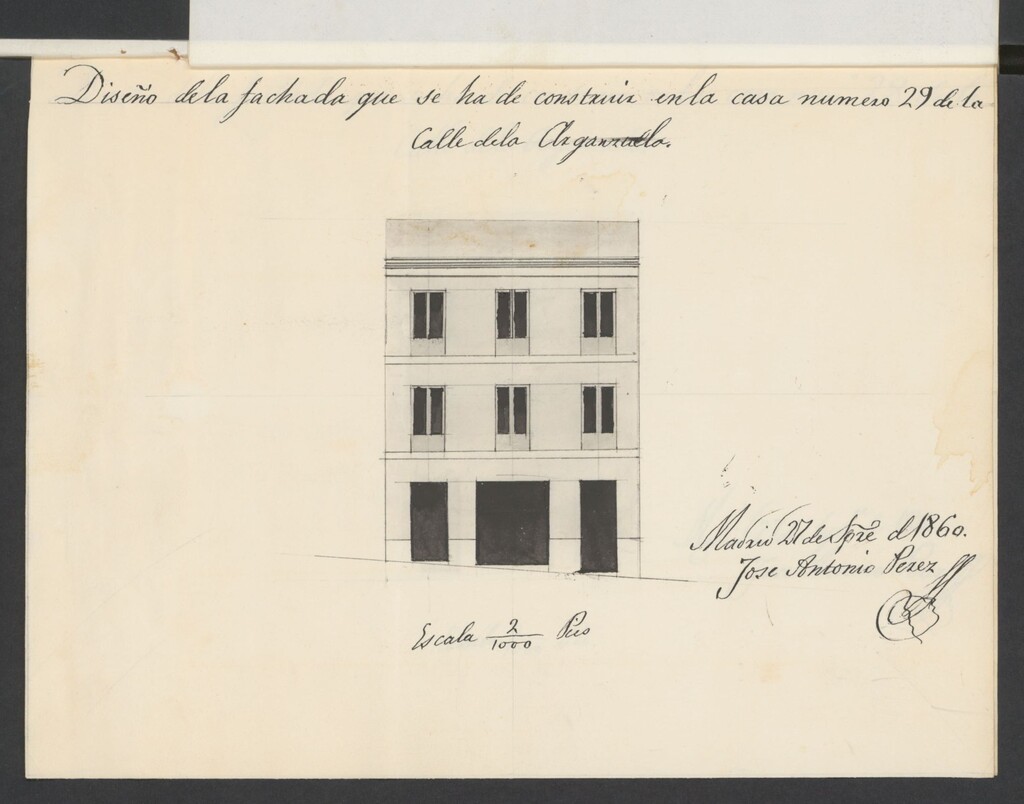 Diseño dela fachada que se ha de construir enla casa numero 29 de la
Calle dela Arganzuela.
Madrid 27 de Spre d 1860.
Jose Antonio Perez
Escala 2/1000 Pies